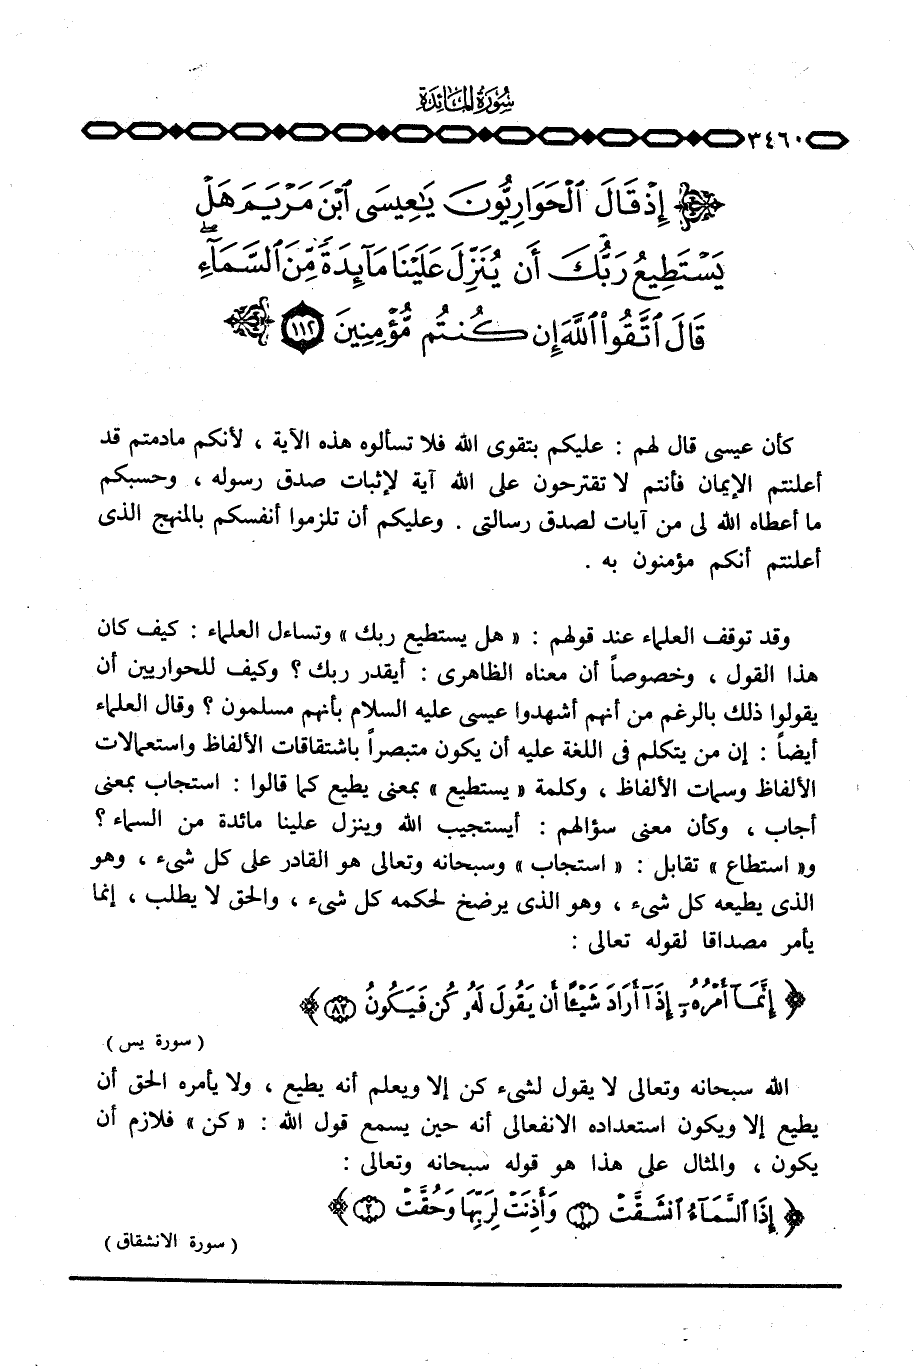 سُورَةُ المَائِدَة
٣٤٦٠
إِذْ قَالَ ٱلْحَوَارِيُّونَ يَٰعِيسَى ٱبْنَ مَرْيَمَ هَلْ
يَسْتَطِيعُ رَبُّكَ أَن يُنَزِّلَ عَلَيْنَا مَآئِدَةً مِّنَ ٱلسَّمَآءِ ۖ
قَالَ ٱتَّقُواْ ٱللَّهَ إِن كُنتُم مُّؤْمِنِينَ ١١٢
كأن عيسى قال لهم : عليكم بتقوى الله فلا تسألوه هذه الآية ، لأنكم مادمتم قد
أعلنتم الإيمان فأنتم لا تقترحون على الله آية لإثبات صدق رسوله ، وحسبكم
ما أعطاه الله لى من آيات لصدق رسالتى . وعليكم أن تلزموا أنفسكم بالمنهج الذى
أعلنتم أنكم مؤمنون به .
وقد توقف العلماء عند قولهم : « هل يستطيع ربك » وتساءل العلماء : كيف كان
هذا القول ، وخصوصاً أن معناه الظاهرى : أيقدر ربك ؟ وكيف للحواريين أن
يقولوا ذلك بالرغم من أنهم أشهدوا عيسى عليه السلام بأنهم مسلمون ؟ وقال العلماء
أيضاً : إن من يتكلم فى اللغة عليه أن يكون متبصراً باشتقاقات الألفاظ واستعمالات
الألفاظ وسمات الألفاظ ، وكلمة « يستطيع » بمعنى يطيع كما قالوا : استجاب بمعنى
أجاب ، وكأن معنى سؤالهم : أيستجيب الله وينزل علينا مائدة من السماء ؟
و« استطاع » تقابل : « استجاب » وسبحانه وتعالى هو القادر على كل شىء ، وهو
الذى يطيعه كل شىء ، وهو الذى يرضخ لحكمه كل شىء ، والحق لا يطلب ، إنما
يأمر مصداقا لقوله تعالى :
﴿ إِنَّمَآ أَمْرُهُۥٓ إِذَآ أَرَادَ شَيْـًٔا أَن يَقُولَ لَهُۥ كُن فَيَكُونُ ٨٢ ﴾
( سورة يس )
الله سبحانه وتعالى لا يقول لشىء كن إلا ويعلم أنه يطيع ، ولا يأمره الحق أن
يطيع إلا ويكون استعداده الانفعالى أنه حين يسمع قول الله : « كن » فلازم أن
يكون ، والمثال على هذا هو قوله سبحانه وتعالى :
﴿ إِذَا ٱلسَّمَآءُ ٱنشَقَّتْ ١ وَأَذِنَتْ لِرَبِّهَا وَحُقَّتْ ٢ ﴾
( سورة الانشقاق )